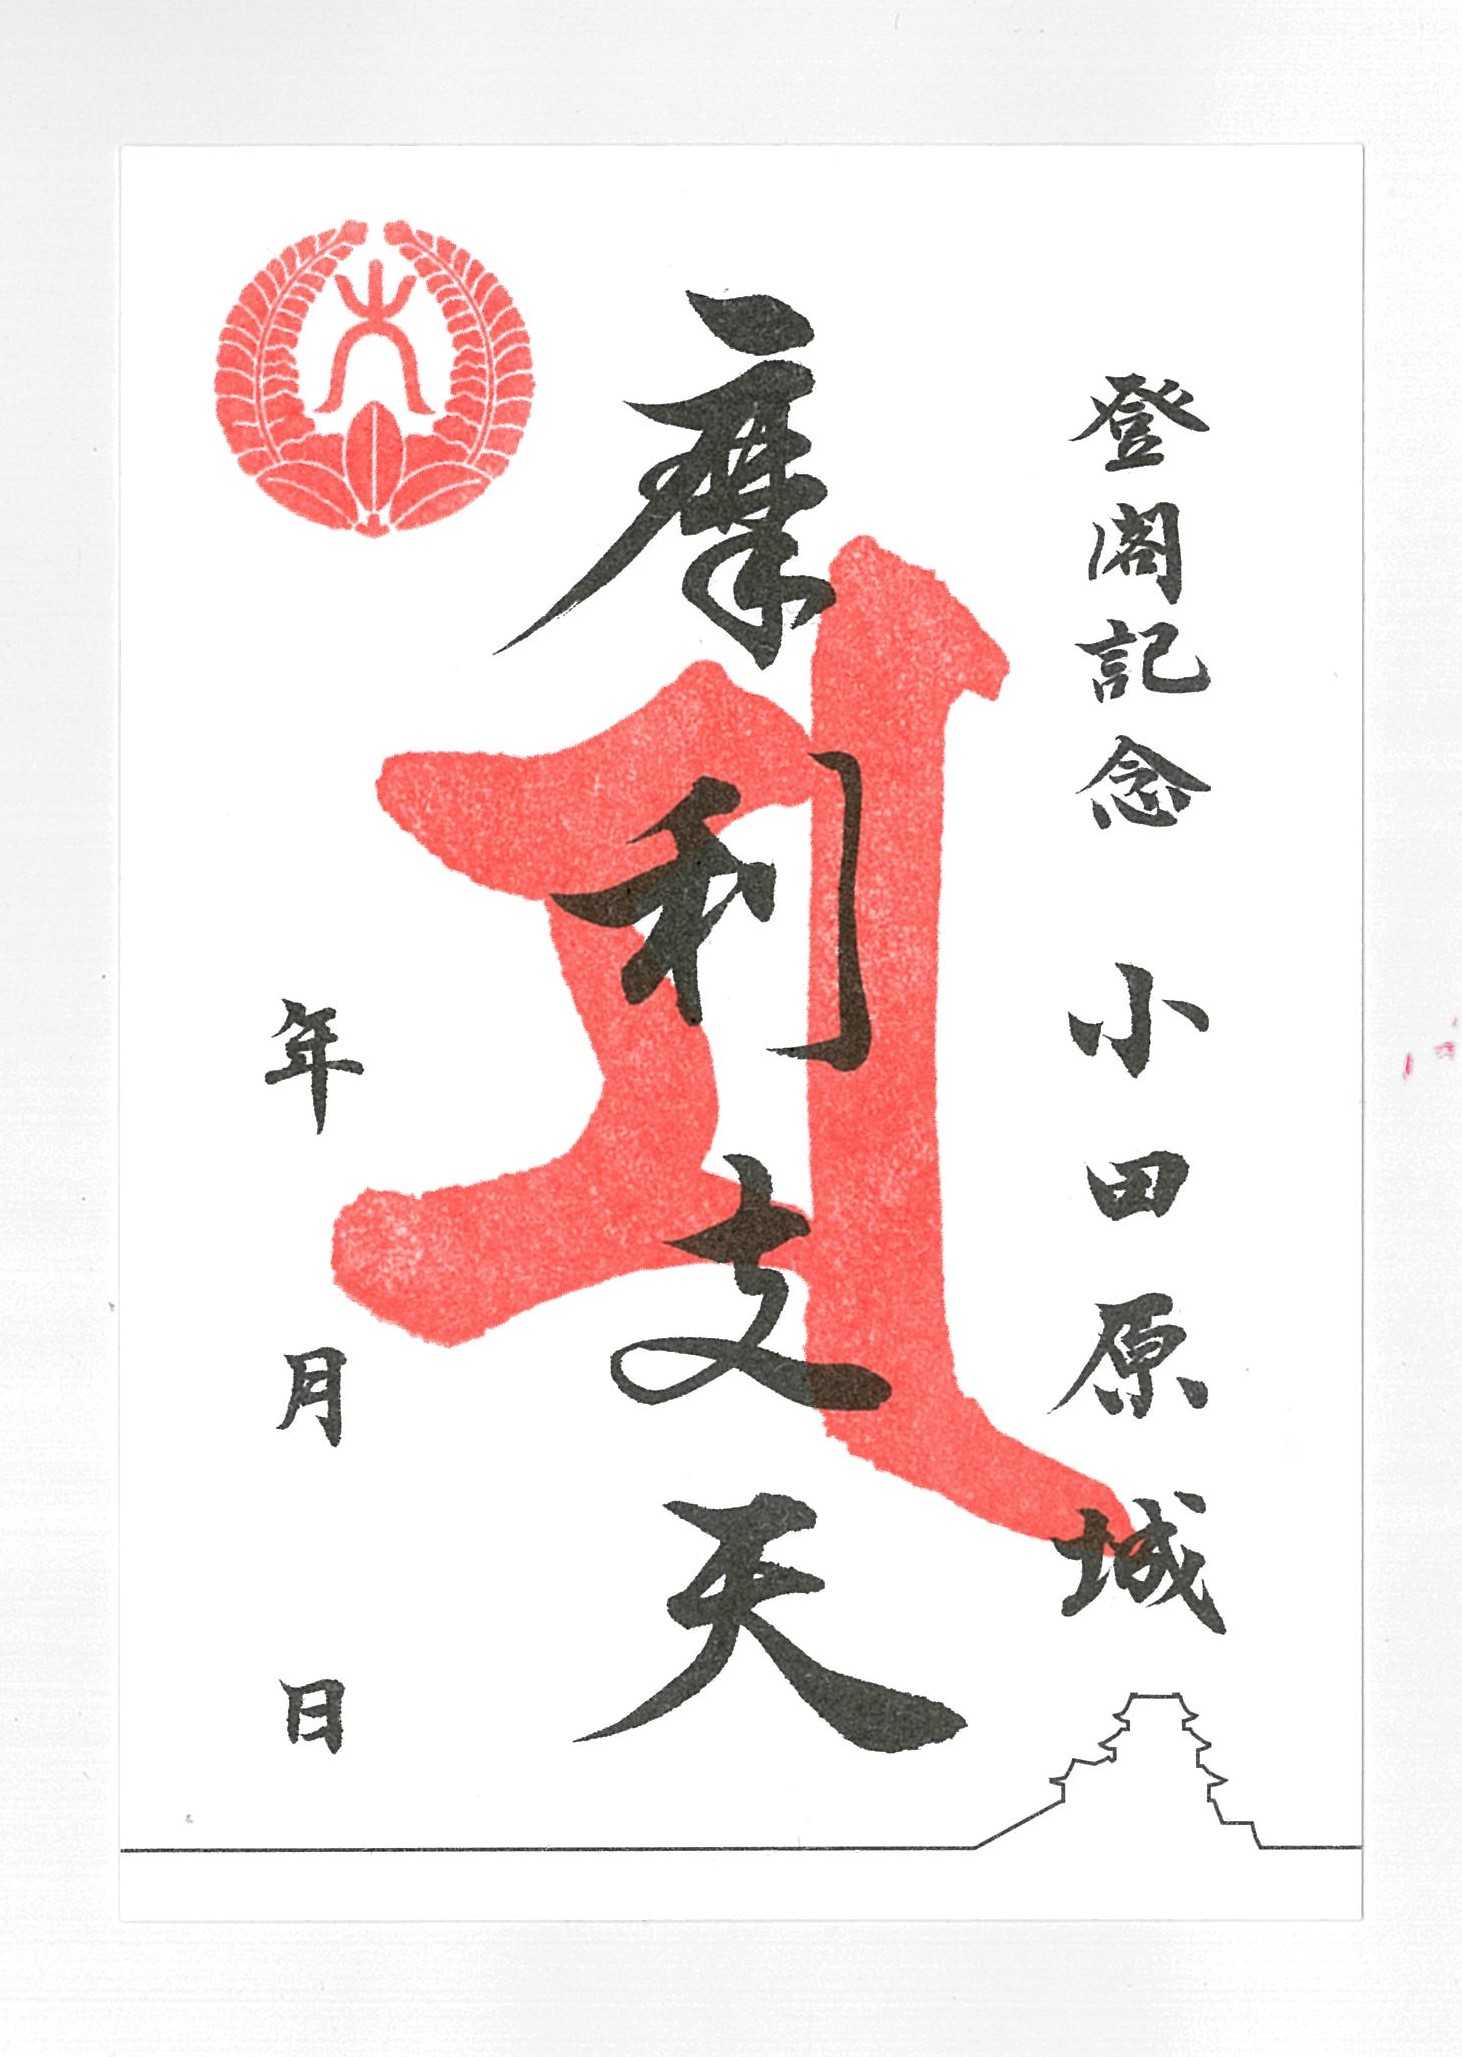 登閣記念 小田原城
摩利支天
年 月 日